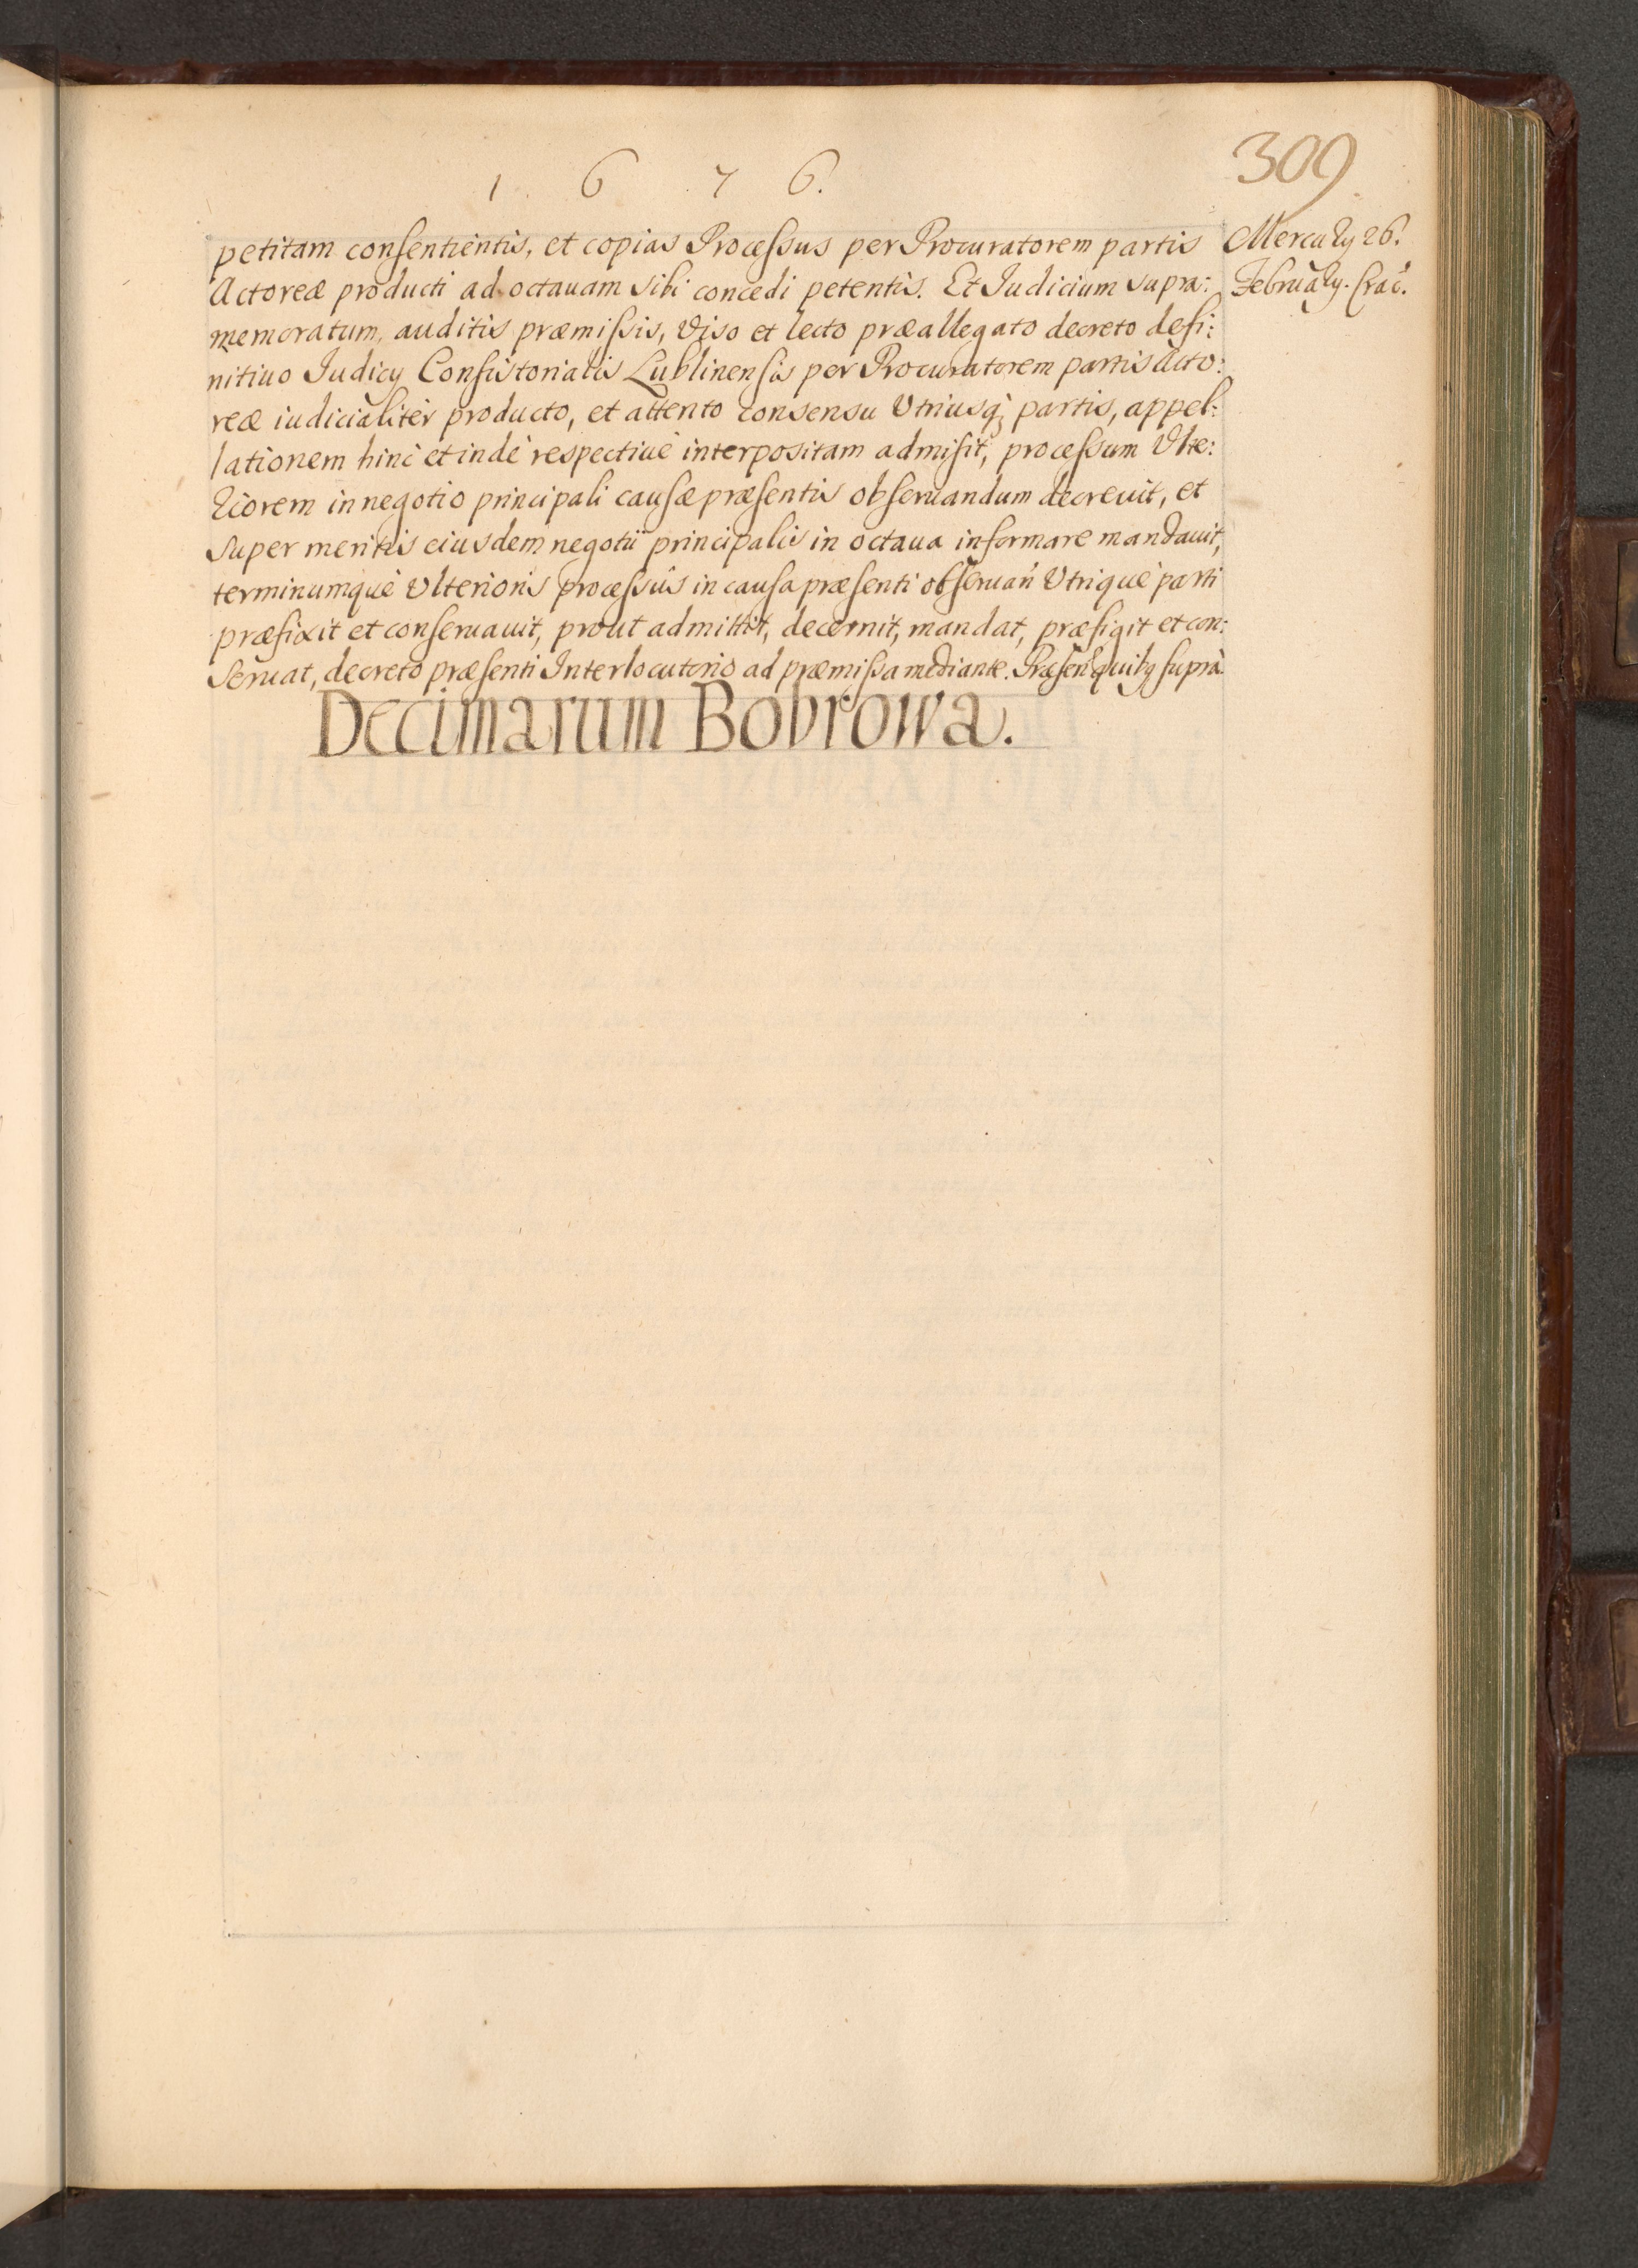 309
1 6 7 6.
Mercurÿ 26.
Februarÿ. Crac.
petitam consentientis, et copias Processus per Procuratorem partis
Actoreæ producti ad octauam sibi concedi petentis. Et Iudicium supra:
memoratum, auditis præmissis, Viso et lecto præallegato decreto defi:
nitiuo Iudicÿ Consistorialis Lublinensis per Procuratorem partis Acto:
reæ iudicialitèr producto, et attento consensu Vtriusq; partis, appel:
lationem hinc et indè respectiuè interpositam admisit, processum Vlte:
riorem in negotio principali causæ præsentis obseruandum decreuit, et
super meritis eiusdem negotii principalis in octaua informare mandauit,
terminumquè Vlterioris processûs in causa præsenti obseruan Vtriquè parti
præfixit et conseruauit, prout admittit, decernit, mandat, præfigit et con:
seruat, decreto præsenti Interlocutorio ad præmissa mediante. Præsen quibq suprà
Decimarum Bobrowa.